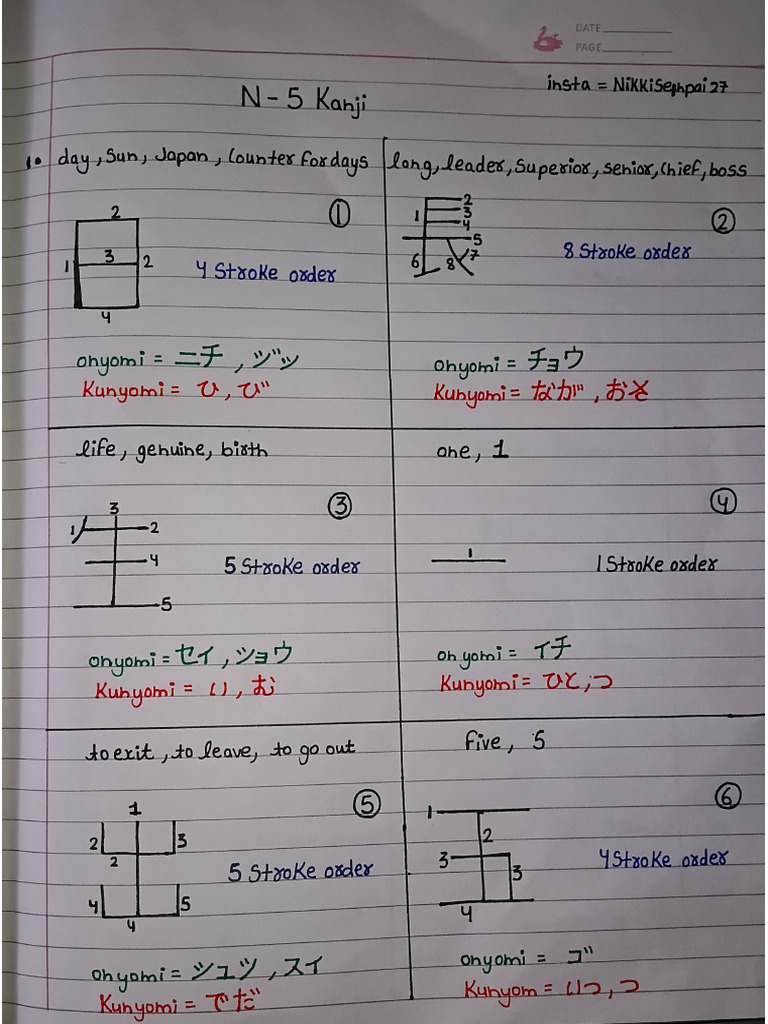 DATE
PAGE
insta = NiKKiSenpai27
N - 5 Kanji
1. day, Sun, Japan, Counter for days
2
①
1 3 2
4 Stroke order
4
onyomi = ニチ, ジツ
Kunyomi = ひ, び
long, leader, Superior, senior, Chief, boss
2
3
1 4
②
5
6 8 7
8 Stroke order
onyomi = チョウ
Kunyomi = なが, おそ
life, genuine, birth
3
③
1 2
4
5 Stroke order
5
onyomi = セイ, ショウ
Kunyomi = い, む
one, 1
④
1
1 Stroke order
onyomi = イチ
Kunyomi = ひと, つ
to exit, to leave, to go out
1
⑤
2 3
2
5 Stroke order
4 5
4
onyomi = シュツ, スイ
Kunyomi = でだ
five, 5
⑥
1
2
3
4 Stroke order
3
4
onyomi = ゴ
Kunyom = いつ, つ